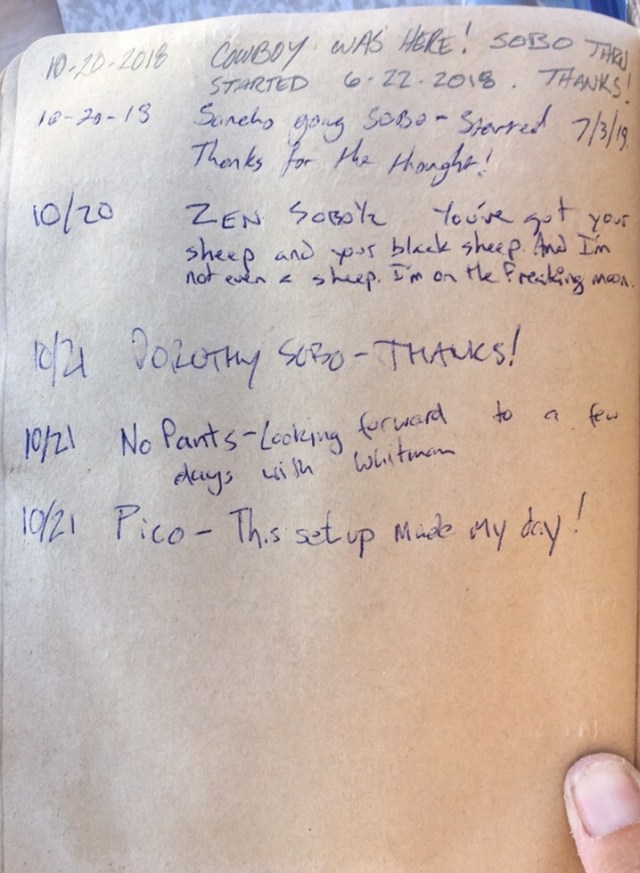 10-20-2018 COWBOY WAS HERE! SOBO THRU
STARTED 6-22-2018. THANKS!
10-20-18 Sancho going SOBO - Started 7/3/18
Thanks for the thought!
10/20 ZEN SOBO 1/2 You've got your
sheep and your black sheep. And I'm
not even a sheep. I'm on the freaking moon.
10/21 DOROTHY SOBO - THANKS!
10/21 No Pants - Looking forward to a few
days with Whitman
10/21 Pico - This setup made my day!